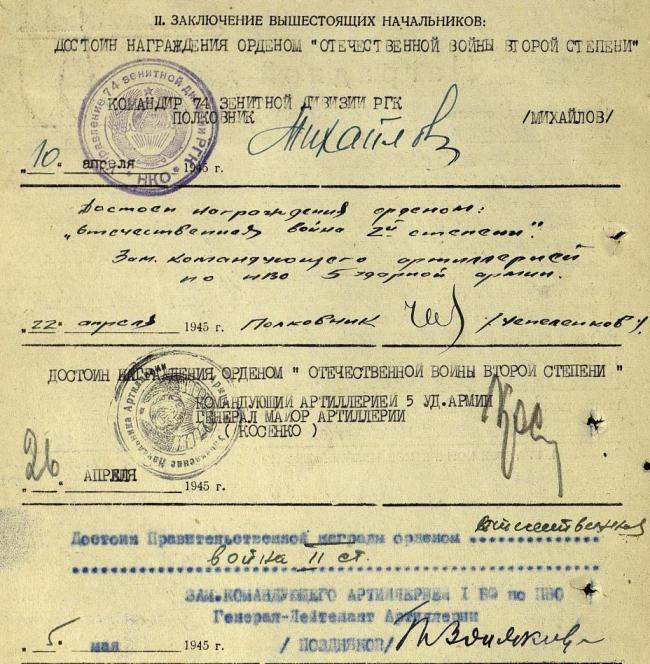 II. ЗАКЛЮЧЕНИЕ ВЫШЕСТОЯЩИХ НАЧАЛЬНИКОВ:
ДОСТОИН НАГРАЖДЕНИЯ ОРДЕНОМ "ОТЕЧЕСТВЕННОЙ ВОЙНЫ ВТОРОЙ СТЕПЕНИ"
Управление 74 зенитной дивизии РГК
НКО
КОМАНДИР 74 ЗЕНИТНОЙ ДИВИЗИИ РГК
ПОЛКОВНИК Михайлов /МИХАЙЛОВ/
„10" апреля 1945 г.
Достоен награждения орденом:
„Отечественная война 2й степени".
Зам. командующего артиллерией
по ПВО 5 ударной армии.
„22" апреля 1945 г. Полковник
ДОСТОИН НАГРАЖДЕНИЯ ОРДЕНОМ " ОТЕЧЕСТВЕННОЙ ВОЙНЫ ВТОРОЙ СТЕПЕНИ "
КОМАНДУЮЩИЙ АРТИЛЛЕРИЕЙ 5 УД.АРМИИ
ГЕНЕРАЛ МАЙОР АРТИЛЛЕРИИ
( КОСЕНКО )
„26" АПРЕЛЯ 1945 г.
Достоин Правительственной награды орденом Отечественная
война II ст.
ЗАМ.КОМАНДУЮЩЕГО АРТИЛЛЕРИЕЙ I БФ по ПВО
Генерал-Лейтенант Артиллерии
„5" мая 1945 г. / ПОЗДНЯКОВ/